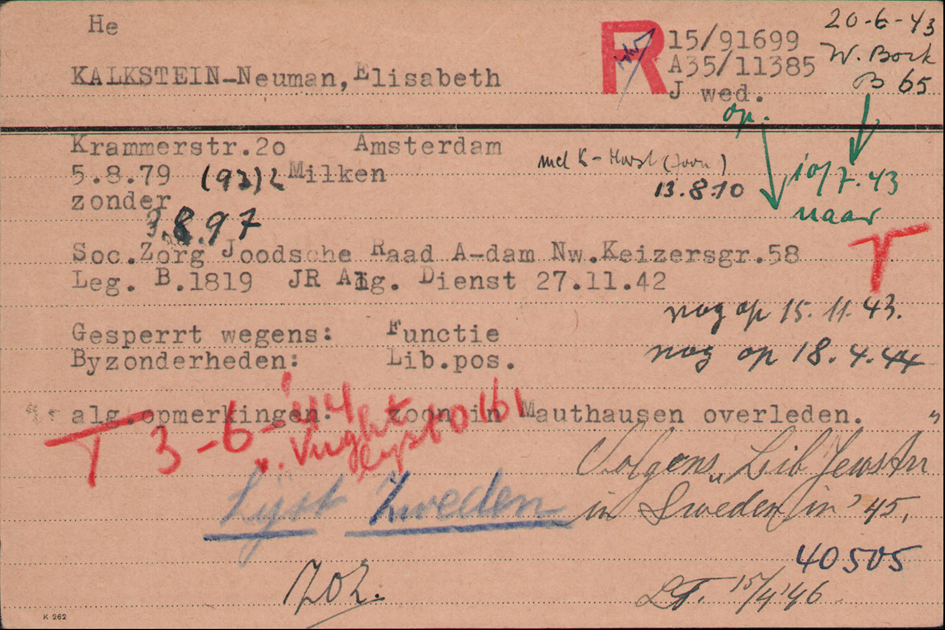 He
KALKSTEIN-Neuman, Elisabeth
R
15/91699
A35/11385
J wed.
20-6-43
W. Bork
B 65
op.
Krammerstr.20 Amsterdam
5.8.79 Milken
met K-Horst (zoon)
13.8.10
10/7.43
naar
zonder
8.97
T
Soc.Zorg Joodsche Raad A-dam Nw.Keizersgr.58
Leg. B.1819 JR Alg. Dienst 27.11.42
nog op 15.11.43.
Gesperrt wegens: Functie
nog op 18.4.44
Byzonderheden: Lib.pos.
alg.opmerkingen: zoon in Mauthausen overleden.
T 3-6-'44
v. Vught
Volgens „Lib Jews Arr
in Sweden in '45."
Lijst Zweden
40505
15/4 '46
K 262